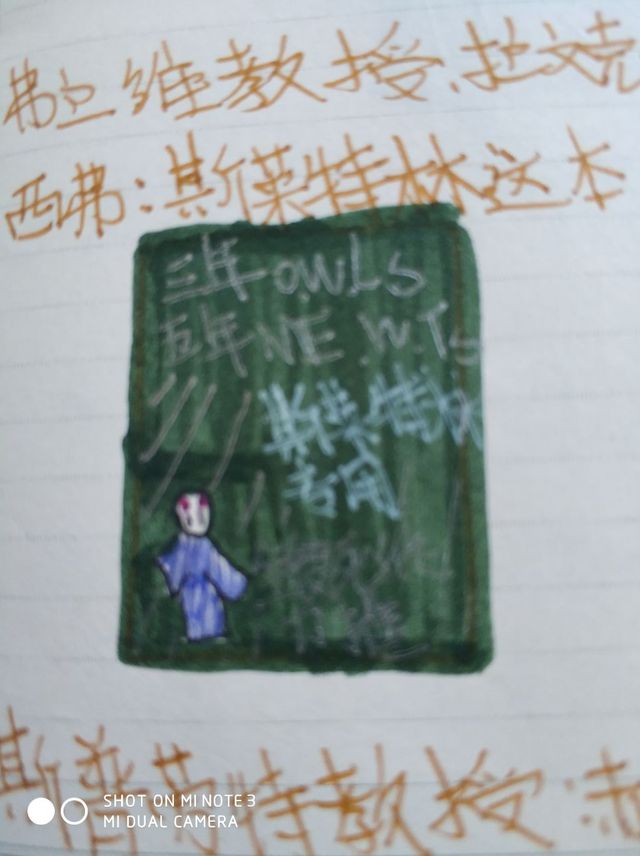 弗立维教授、拉文克
西弗:斯莱特林这本
三年OWLs
五年NE.W.Ts
斯莱特林
专用
斯普劳特教授:赫
SHOT ON MI NOTE 3
MI DUAL CAMERA